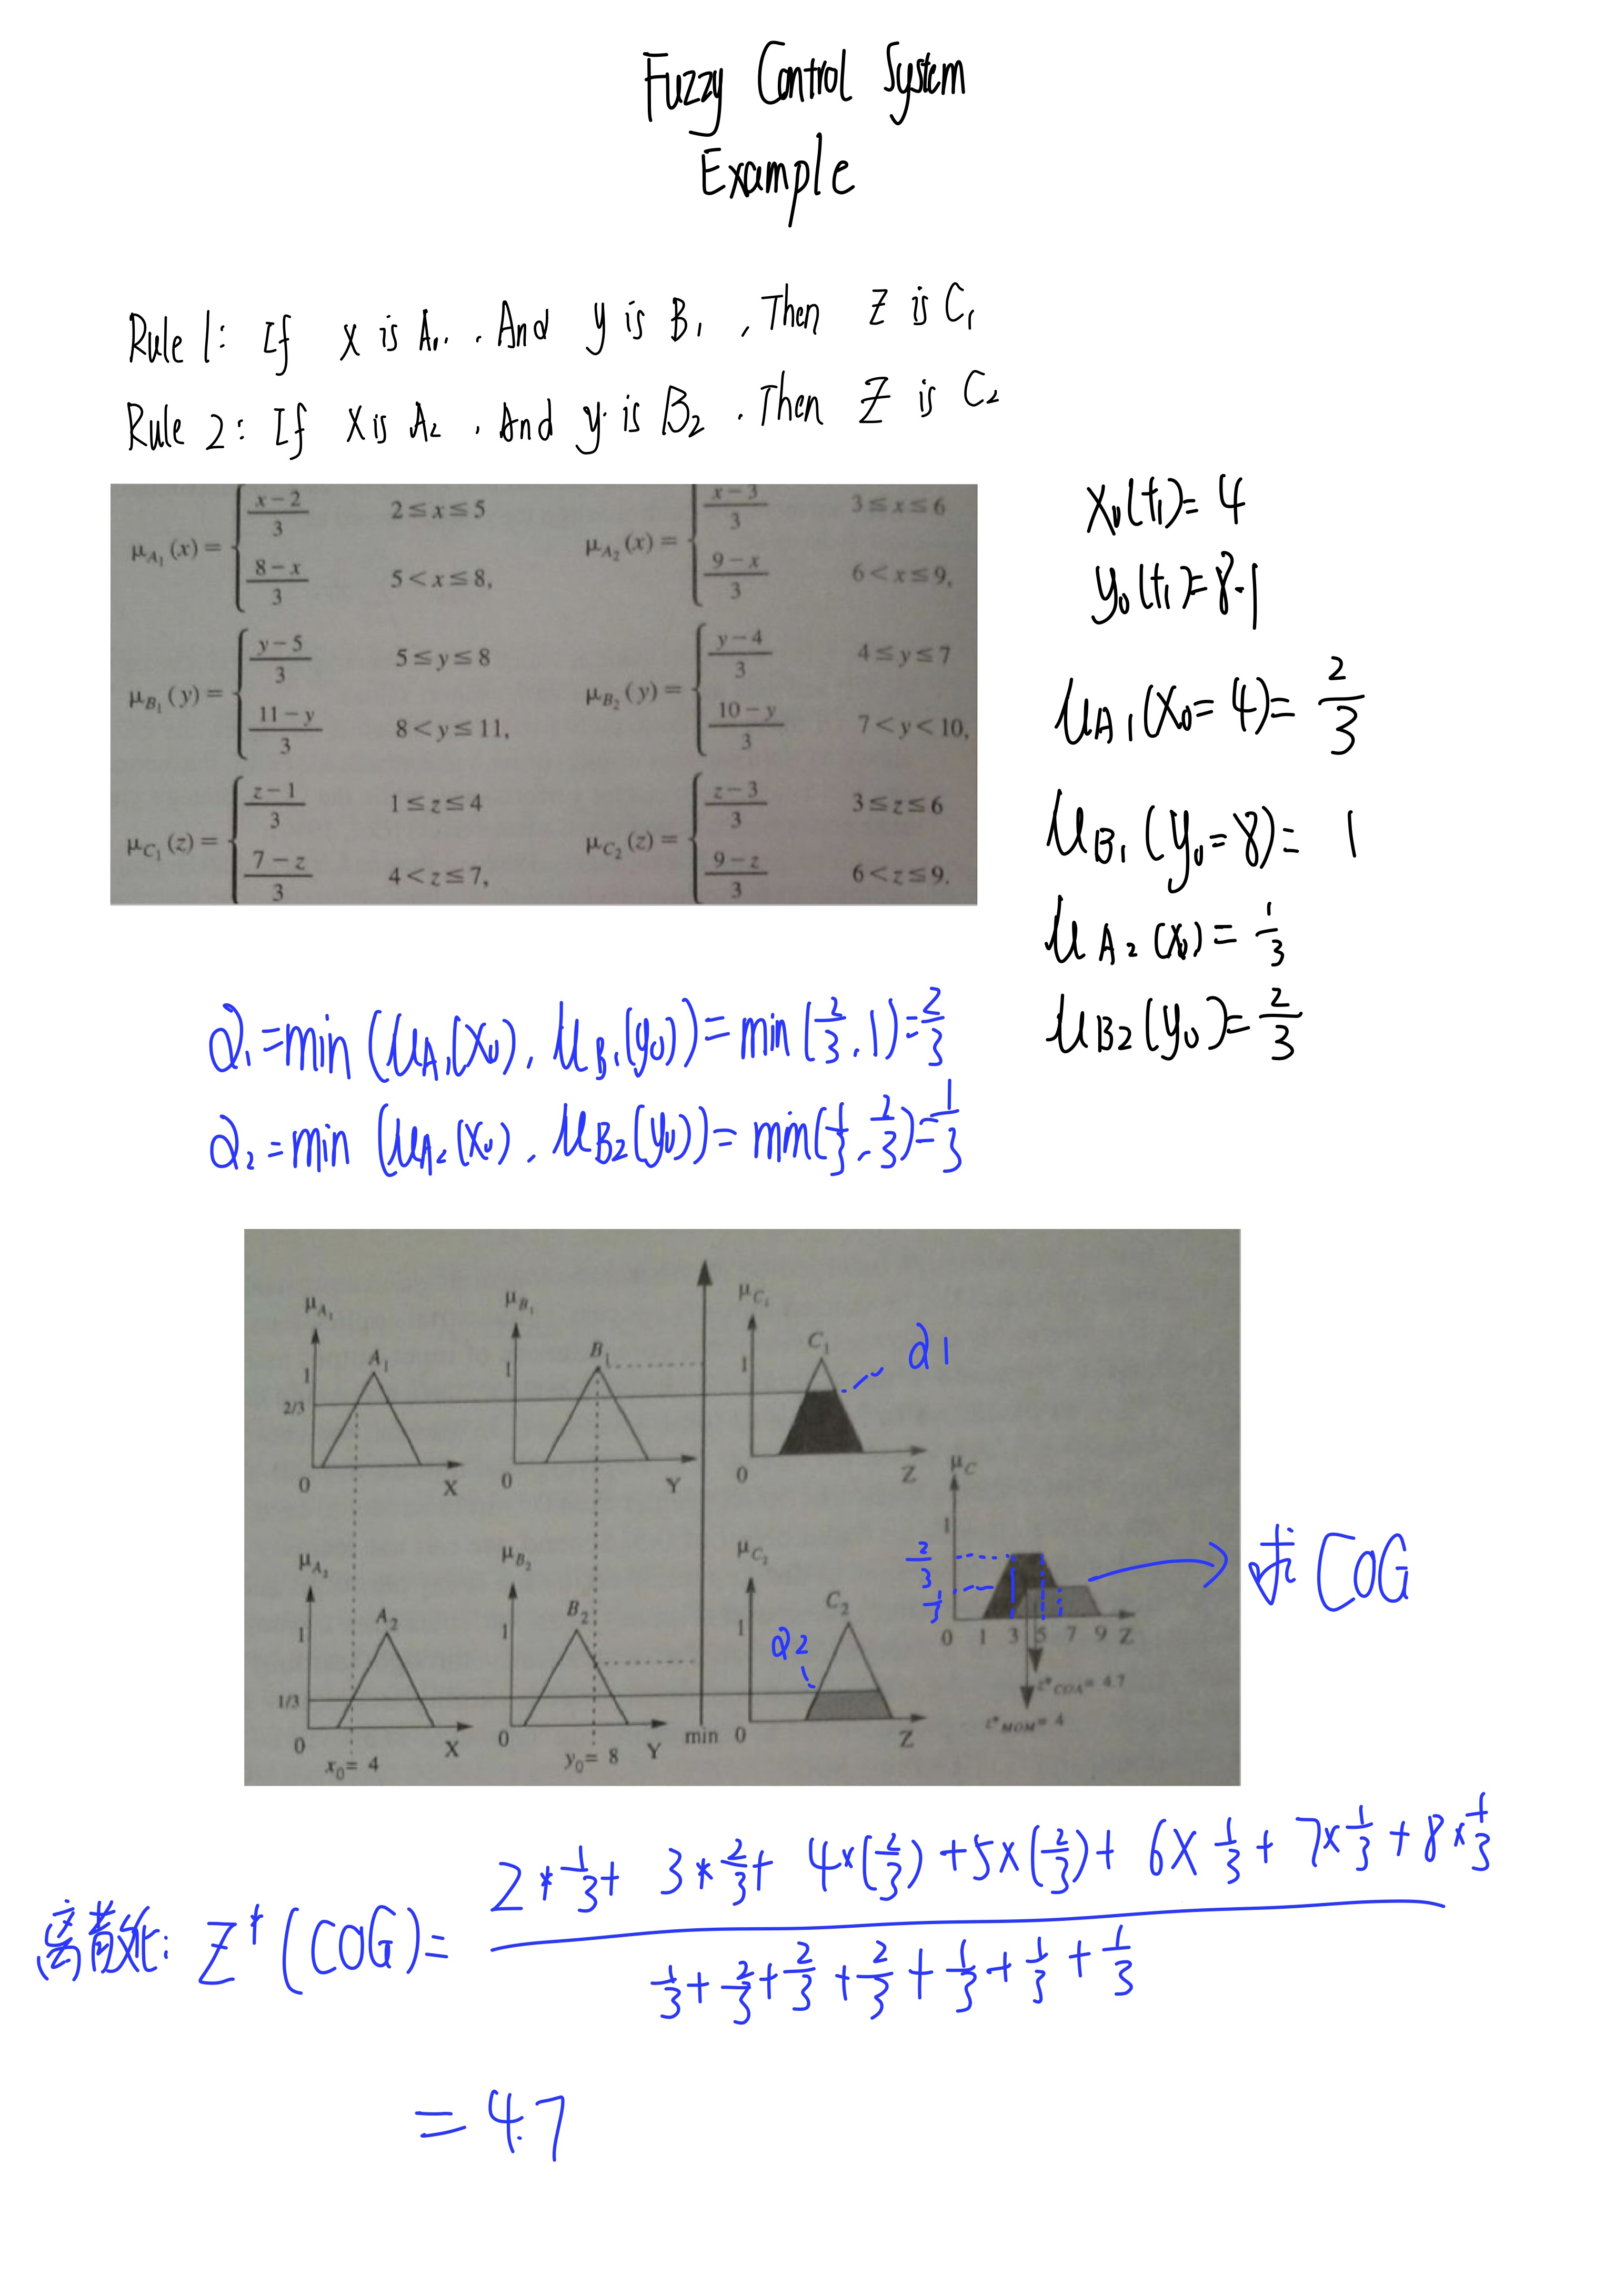 Fuzzy Control System
Example
Rule 1: If x is A₁, And y is B₁, Then Z is C₁
Rule 2: If x is A₂, And y is B₂, Then Z is C₂
μ_A₁(x) = { (x−2)/3   2≤x≤5
(8−x)/3   5<x≤8,
μ_A₂(x) = { (x−3)/3   3≤x≤6
(9−x)/3   6<x≤9,
μ_B₁(y) = { (y−5)/3   5≤y≤8
(11−y)/3   8<y≤11,
μ_B₂(y) = { (y−4)/3   4≤y≤7
(10−y)/3   7<y<10,
μ_C₁(z) = { (z−1)/3   1≤z≤4
(7−z)/3   4<z≤7,
μ_C₂(z) = { (z−3)/3   3≤z≤6
(9−z)/3   6<z≤9.
x₀(t₁)=4
y₀(t₁)=8
μA₁(x₀=4)=2/3
μB₁(y₀=8)=1
μA₂(x₀)=1/3
μB2(y₀)=2/3
α₁=min(μA₁(x₀), μB₁(y₀))=min(2/3, 1)=2/3
α₂=min(μA₂(x₀), μB2(y₀))=min(1/3, 2/3)=1/3
μ_A₁
1
2/3
A₁
0
X
μ_B₁
1
B₁
0
Y
μ_C₁
1
C₁
α1
0
Z
μ_A₂
1
1/3
A₂
0
X
x₀= 4
μ_B₂
1
B₂
0
Y
y₀= 8
min
μ_C₂
1
C₂
α2
0
Z
μ_C
1
2/3
1/3
0 1 3 5 7 9 Z
z*_COA= 4.7
z*_MOM= 4
求COG
离散化: Z*(COG)= (2*1/3+ 3*2/3+ 4×(2/3)+5×(2/3)+ 6×1/3+ 7×1/3+8×1/3) / (1/3+2/3+2/3+2/3+1/3+1/3+1/3)
=4.7